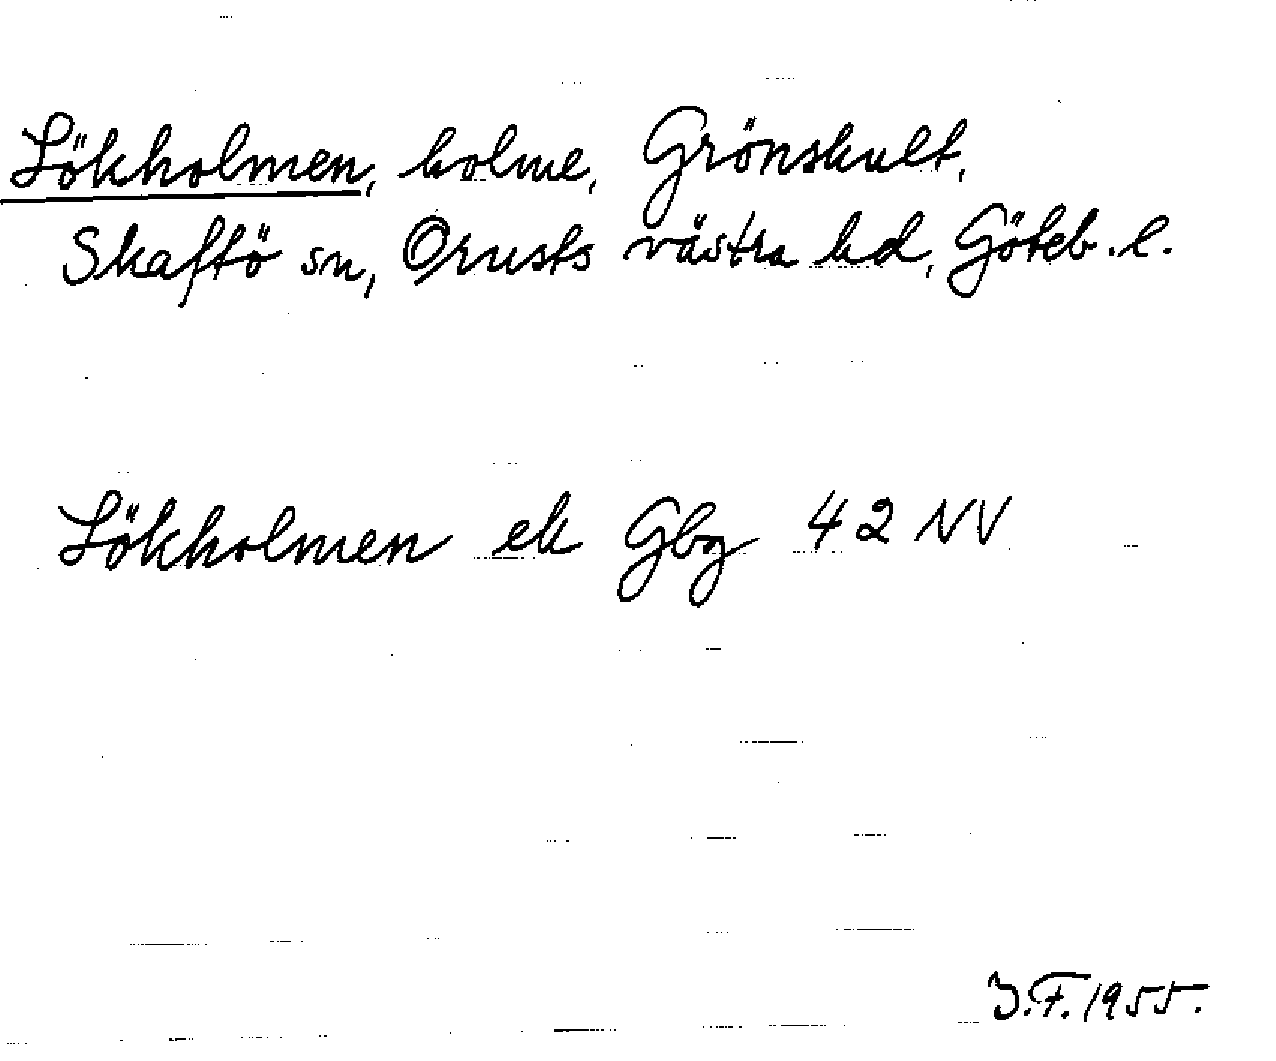 Lökholmen, holme, Grönskult,
Skaftö sn, Orusts västra hd, Göteb. l.
Lökholmen ek Gbg 42 NV
J.F. 1955.